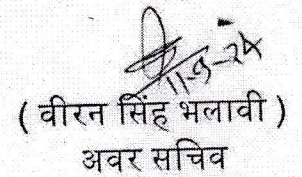 11-9-24
( वीरन सिंह भलावी )
अवर सचिव